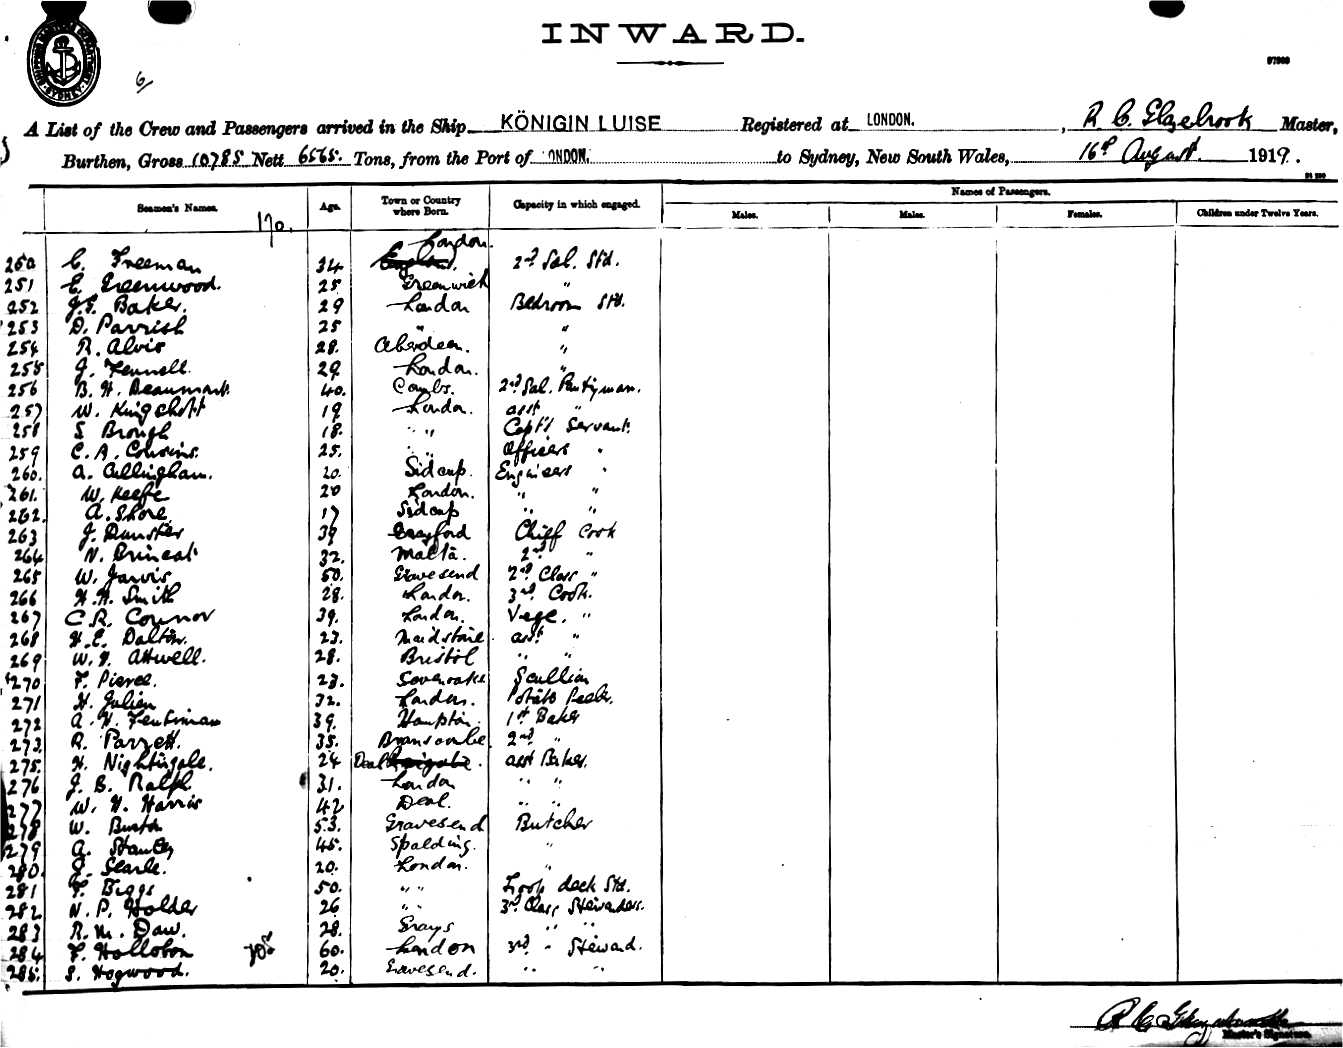 INWARD.
97909
6/
A List of the Crew and Passengers arrived in the Ship KÖNIGIN LUISE Registered at LONDON. , Master,
Burthen, Gross 10785 Nett 6565. Tons, from the Port of ONDON. to Sydney, New South Wales, 16th August 1919.
Names of Passengers.
Seamen's Names. Age. Town or Country where Born. Capacity in which engaged. Males. Males. Females. Children under Twelve Years.
170.
250 C. Freeman 34 England. London. 2nd Sal. Std.
251 C. Greenwood. 25 Greenwich "
252 J.E. Baker. 29 London Bedroom Std.
253 D. Parrish 25 " "
254 R. Alvis 28. Aberdeen. "
255 J. Fennell. 29 London. "
256 B. H. Beaumont. 40. Combs. 2nd Sal. Pantryman.
257 W. Kingshott 19 London. asst "
258 S Brough 18. " " Capt's Servant.
259 C. A. Cousins. 25. " " Officers "
260. A. Cullingham. 20. Sidcup. Engineers "
261. W. Keefe 20 London. " "
262. A. Shore 17 Sidcup " "
263 J. Dunster 39 Crayford Chief Cook
264 N. Brincat 32. Malta. 2nd "
265 W. Jarvis 50. Gravesend 2nd Class "
266 H. H. Smith 28. London. 3rd Cook.
267 C R. Connor 39. London. Vege. "
268 H. E. Dalton. 23. Maidstone asst "
269 W. J. Attwell. 28. Bristol " "
270 F. Pierce. 23. Sevenoaks Scullion
271 H. Julien 32. London. Potato Peeler.
272 A. H. Fentiman 39. Hampton. 1st Baker
273 R. Parrett. 35. Branscombe 2nd "
275. H. Nightingale. 24 Deal Reigate. asst Baker.
276 J. B. Ralph 31. London " "
277 W. H. Harris 42 Deal. " "
278 W. Burton 53. Gravesend Butcher
279 A. Stanley 45. Spalding. "
280. J. Searle. 20. London. "
281 F. Biggs 50. " " Troop deck Std.
282 N. P. Holder 26 " " 3rd Class Stewards.
283 R. M. Daw. 28. Grays " "
284 F. Hollobon 60. London 3rd " Steward.
285. S. Hogwood. 20. Gravesend. " "
Master's Signature.